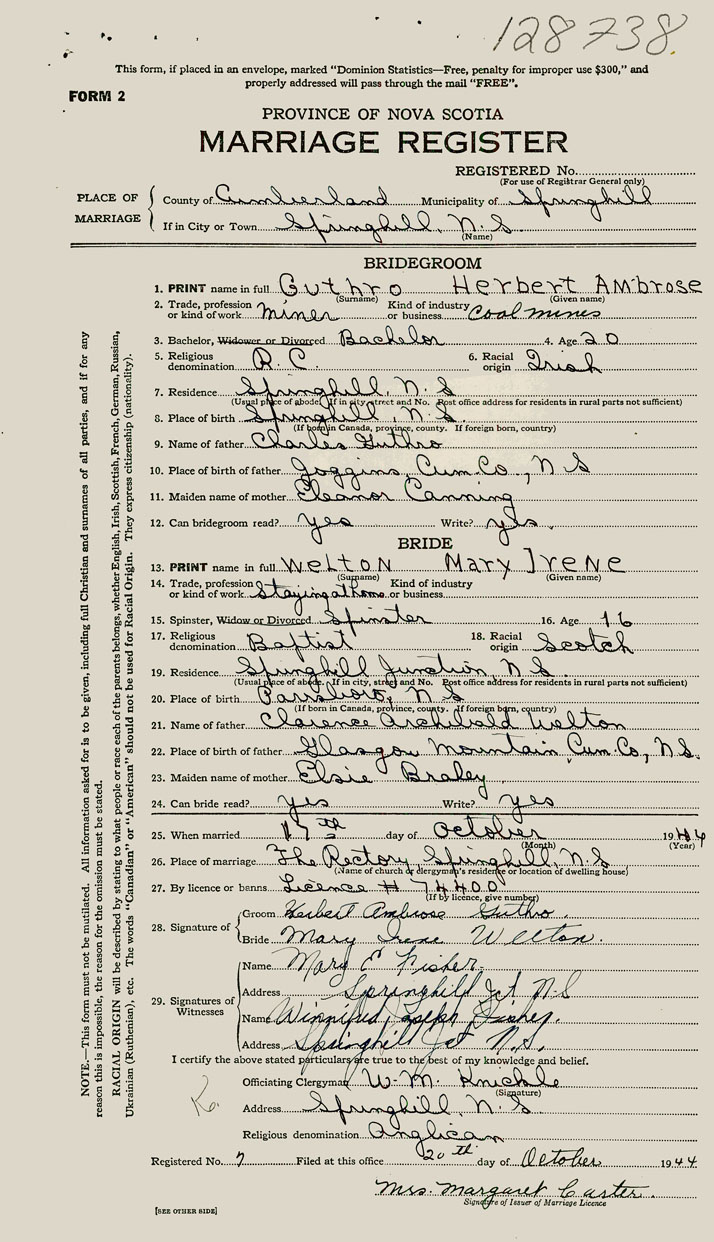 128738.
This form, if placed in an envelope, marked "Dominion Statistics—Free, penalty for improper use $300," and
properly addressed will pass through the mail "FREE".
FORM 2
PROVINCE OF NOVA SCOTIA
MARRIAGE REGISTER
REGISTERED No.
(For use of Registrar General only)
PLACE OF MARRIAGE
County of Cumberland Municipality of Springhill
If in City or Town Springhill, N.S
(Name)
BRIDEGROOM
1. PRINT name in full Guthro Herbert Ambrose
(Surname) (Given name)
2. Trade, profession or kind of work Miner Kind of industry or business Coal mines
3. Bachelor, Widower or Divorced Bachelor 4. Age 20
5. Religious denomination R. C. 6. Racial origin Irish
7. Residence Springhill, N. S
(Usual place of abode. If in city, street and No. Post office address for residents in rural parts not sufficient)
8. Place of birth Springhill, N. S.
(If born in Canada, province, county. If foreign born, country)
9. Name of father Charles Guthro
10. Place of birth of father Joggins, Cum. Co., N S
11. Maiden name of mother Eleanor Canning
12. Can bridegroom read? yes Write? yes.
BRIDE
13. PRINT name in full Welton Mary Irene
(Surname) (Given name)
14. Trade, profession or kind of work Staying at home Kind of industry or business
15. Spinster, Widow or Divorced Spinster 16. Age 16
17. Religious denomination Baptist 18. Racial origin Scotch
19. Residence Springhill Junction N S.
(Usual place of abode. If in city, street and No. Post office address for residents in rural parts not sufficient)
20. Place of birth Parrsboro, N S
(If born in Canada, province, county. If foreign born, country)
21. Name of father Clarence Archibald Welton
22. Place of birth of father Glasgow Mountain Cum. Co, N.S.
23. Maiden name of mother Elsie Braley
24. Can bride read? yes Write? yes
25. When married 17th day of October 1944
(Month) (Year)
26. Place of marriage The Rectory, Springhill, N.S
(Name of church or clergyman's residence or location of dwelling house)
27. By licence or banns Licence # 74400
(If by licence, give number)
28. Signature of
Groom Herbert Ambrose Guthro.
Bride Mary Irene Welton.
29. Signatures of Witnesses
Name Mary E Fisher.
Address Springhill Jct N.S
Name Winnifred Joseph Fisher.
Address Springhill Jct N.S.
I certify the above stated particulars are true to the best of my knowledge and belief.
Officiating Clergyman W. M. Knickle
(Signature)
Address Springhill, N. S
Religious denomination Anglican
Registered No. 7 Filed at this office 20th day of October 1944
Mrs. Margaret Caster.
Signature of Issuer of Marriage Licence
[SEE OTHER SIDE]
NOTE.—This form must not be mutilated. All information asked for is to be given, including full Christian and surnames of all parties, and if for any
reason this is impossible, the reason for the omission must be stated.
RACIAL ORIGIN will be described by stating to what people or race each of the parents belongs, whether English, Irish, Scottish, French, German, Russian,
Ukrainian (Ruthenian), etc. The words "Canadian" or "American" should not be used for Racial Origin. They express citizenship (nationality).